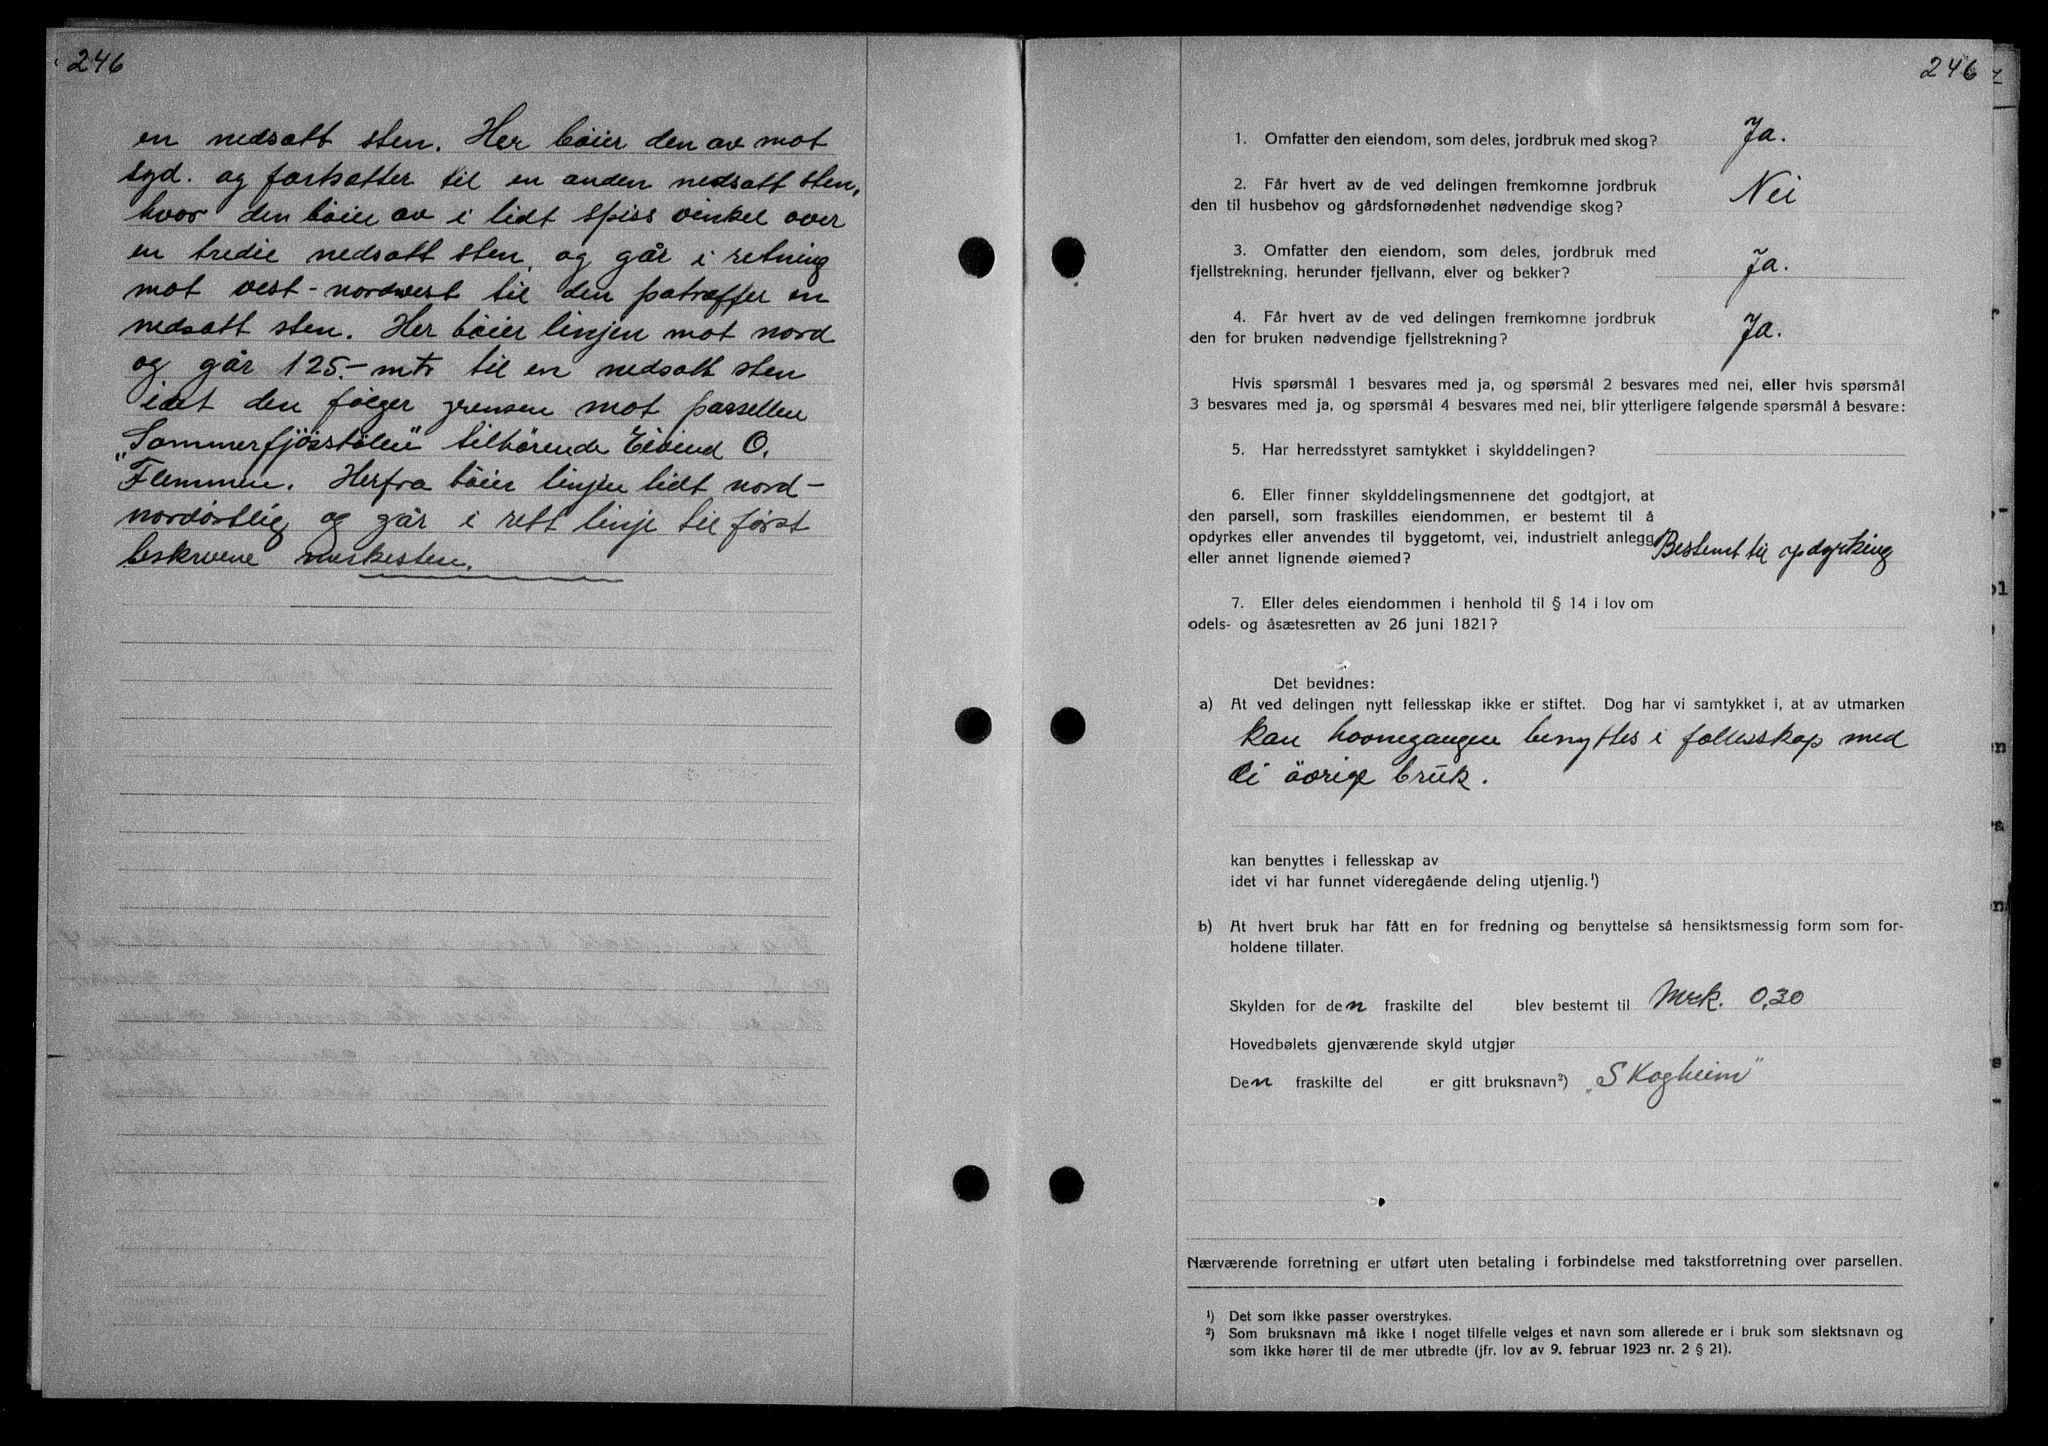 246
en nedsatt sten. Her bøier den av mot
syd. og fortsetter til en anden nedsatt sten,
hvor den bøie av i lidt spiss vinkel over
en tredie nedsatt sten, og går i retning
mot vest-nordvest til den patræffer en
nedsatt sten. Her bøier linjen mot nord
og går 125.- mtr til en nedsatt sten
idet den følger grensen mot parsellen
„Sommerfjösstölen" tilhørende Eivind O.
Flemmen. Herfra bøier linjen lidt nord-
nordøstlig og går i rett linje til først
beskrevne merkesten.
246
1. Omfatter den eiendom, som deles, jordbruk med skog? Ja.
2. Får hvert av de ved delingen fremkomne jordbruk
den til husbehov og gårdsfornødenhet nødvendige skog? Nei
3. Omfatter den eiendom, som deles, jordbruk med
fjellstrekning, herunder fjellvann, elver og bekker? Ja.
4. Får hvert av de ved delingen fremkomne jordbruk
den for bruken nødvendige fjellstrekning? Ja.
Hvis spørsmål 1 besvares med ja, og spørsmål 2 besvares med nei, eller hvis spørsmål
3 besvares med ja, og spørsmål 4 besvares med nei, blir ytterligere følgende spørsmål å besvare:
5. Har herredsstyret samtykket i skylddelingen?
6. Eller finner skylddelingsmennene det godtgjort, at
den parsell, som fraskilles eiendommen, er bestemt til å
opdyrkes eller anvendes til byggetomt, vei, industrielt anlegg
eller annet lignende øiemed? Bestemt til opdyrking
7. Eller deles eiendommen i henhold til § 14 i lov om
odels- og åsætesretten av 26 juni 1821?
Det bevidnes:
a) At ved delingen nytt fellesskap ikke er stiftet. Dog har vi samtykket i, at av utmarken
kan havnegangen benyttes i fellesskap med
di övrige bruk.
kan benyttes i fellesskap av
idet vi har funnet videregående deling utjenlig.¹)
b) At hvert bruk har fått en for fredning og benyttelse så hensiktsmessig form som for-
holdene tillater.
Skylden for den fraskilte del blev bestemt til Mrk. 0,30
Hovedbølets gjenværende skyld utgjør
Den fraskilte del er gitt bruksnavn²) „Skogheim"
Nærværende forretning er utført uten betaling i forbindelse med takstforretning over parsellen.
¹) Det som ikke passer overstrykes.
²) Som bruksnavn må ikke i noget tilfelle velges et navn som allerede er i bruk som slektsnavn og
som ikke hører til de mer utbredte (jfr. lov av 9. februar 1923 nr. 2 § 21).